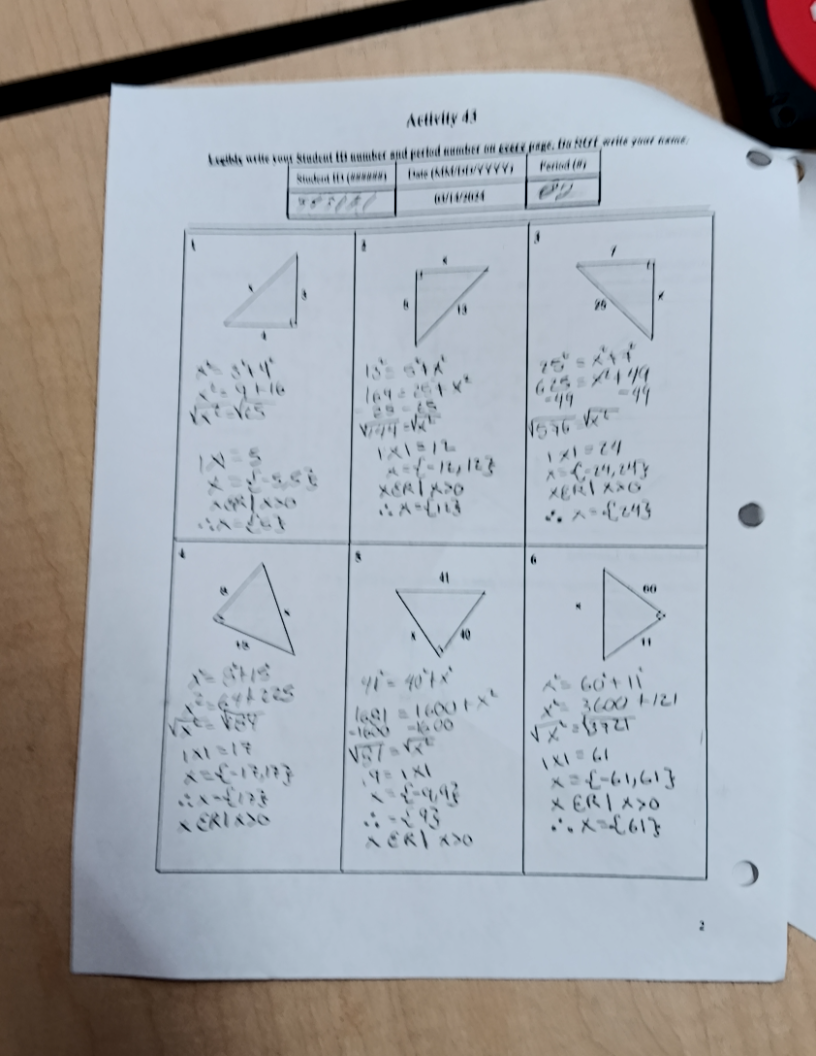 Activity 43
Legibly write your Student ID number and period number on every page. Do NOT write your name.
Student ID (######) Date (MM/DD/YYYY) Period (#)
1
x
3
4
x² = 3² + 4²
x² = 9 + 16
√x² = √25
|x| = 5
x = {-5,5}
x ∈ ℝ | x>0
∴ x = {5}
2
x
13
13² = 5² + x²
169 = 25 + x²
-25 -25
√144 = √x²
|x| = 12
x = {-12,12}
x ∈ ℝ | x>0
∴ x = {12}
3
7
25
x
25² = x² + 7²
625 = x² + 49
-49 -49
√576 = √x²
|x| = 24
x = {-24,24}
x ∈ ℝ | x>0
∴ x = {24}
4
8
x
15
x² = 8² + 15²
x² = 64 + 225
|x| = 17
x = {-17,17}
∴ x = {17}
x ∈ ℝ | x>0
5
41
x
40
41² = 40² + x²
1681 = 1600 + x²
-1600 -1600
√81 = √x²
9 = |x|
x = {-9,9}
∴ = {9}
x ∈ ℝ | x>0
6
60
x
11
x² = 60² + 11²
x² = 3600 + 121
√x² = √3721
|x| = 61
x = {-61,61}
x ∈ ℝ | x>0
∴ x = {61}
2